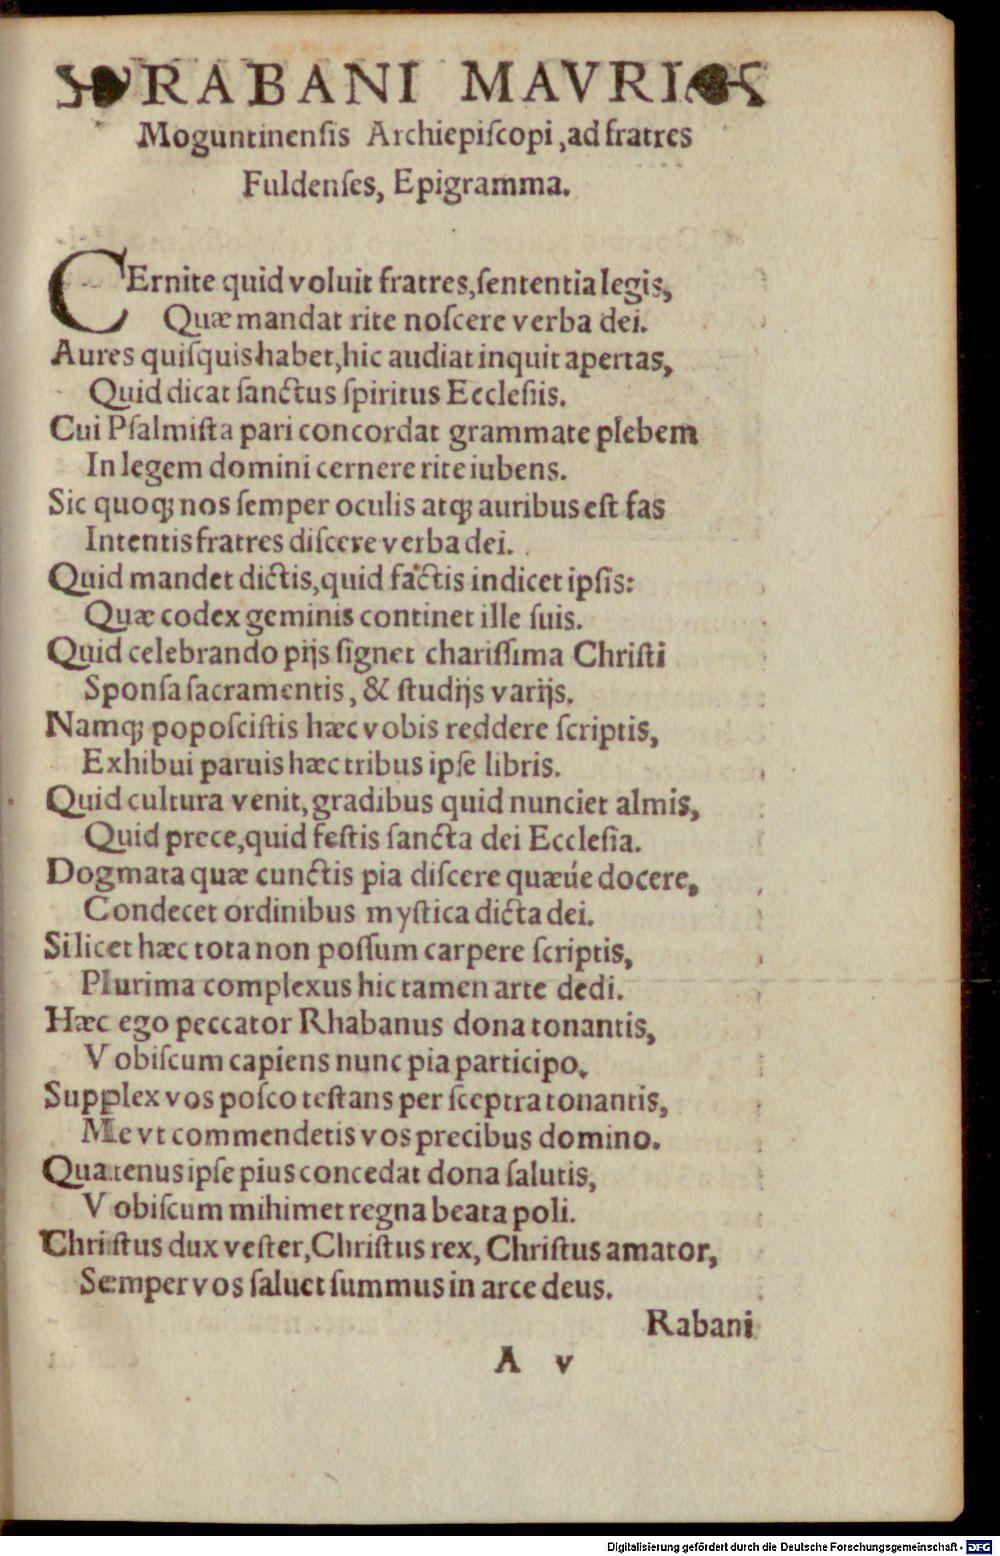 RABANI MAVRI
Moguntinensis Archiepiſcopi, ad fratres
Fuldenſes, Epigramma.
CErnite quid voluit fratres, ſententia legis,
Quæ mandat rite noſcere verba dei.
Aures quiſquis habet, hic audiat inquit apertas,
Quid dicat ſanctus ſpiritus Eccleſiis.
Cui Pſalmiſta pari concordat grammate plebem
In legem domini cernere rite iubens.
Sic quoq; nos ſemper oculis atq; auribus eſt fas
Intentis fratres diſcere verba dei.
Quid mandet dictis, quid factis indicet ipſis:
Quæ codex geminis continet ille ſuis.
Quid celebrando pijs ſignet chariſſima Chriſti
Sponſa ſacramentis, & ſtudijs varijs.
Namq; popoſciſtis hæc vobis reddere ſcriptis,
Exhibui paruis hæc tribus ipſe libris.
Quid cultura venit, gradibus quid nunciet almis,
Quid prece, quid feſtis ſancta dei Eccleſia.
Dogmata quæ cunctis pia diſcere quæúe docere,
Condecet ordinibus myſtica dicta dei.
Si licet hæc tota non poſſum carpere ſcriptis,
Plurima complexus hic tamen arte dedi.
Hæc ego peccator Rhabanus dona tonantis,
Vobiſcum capiens nunc pia participo.
Supplex vos poſco teſtans per ſceptra tonantis,
Me vt commendetis vos precibus domino.
Quatenus ipſe pius concedat dona ſalutis,
Vobiſcum mihimet regna beata poli.
Chriſtus dux veſter, Chriſtus rex, Chriſtus amator,
Semper vos ſaluet ſummus in arce deus.
Rabani
A v
Digitalisierung gefördert durch die Deutsche Forschungsgemeinschaft - DFG